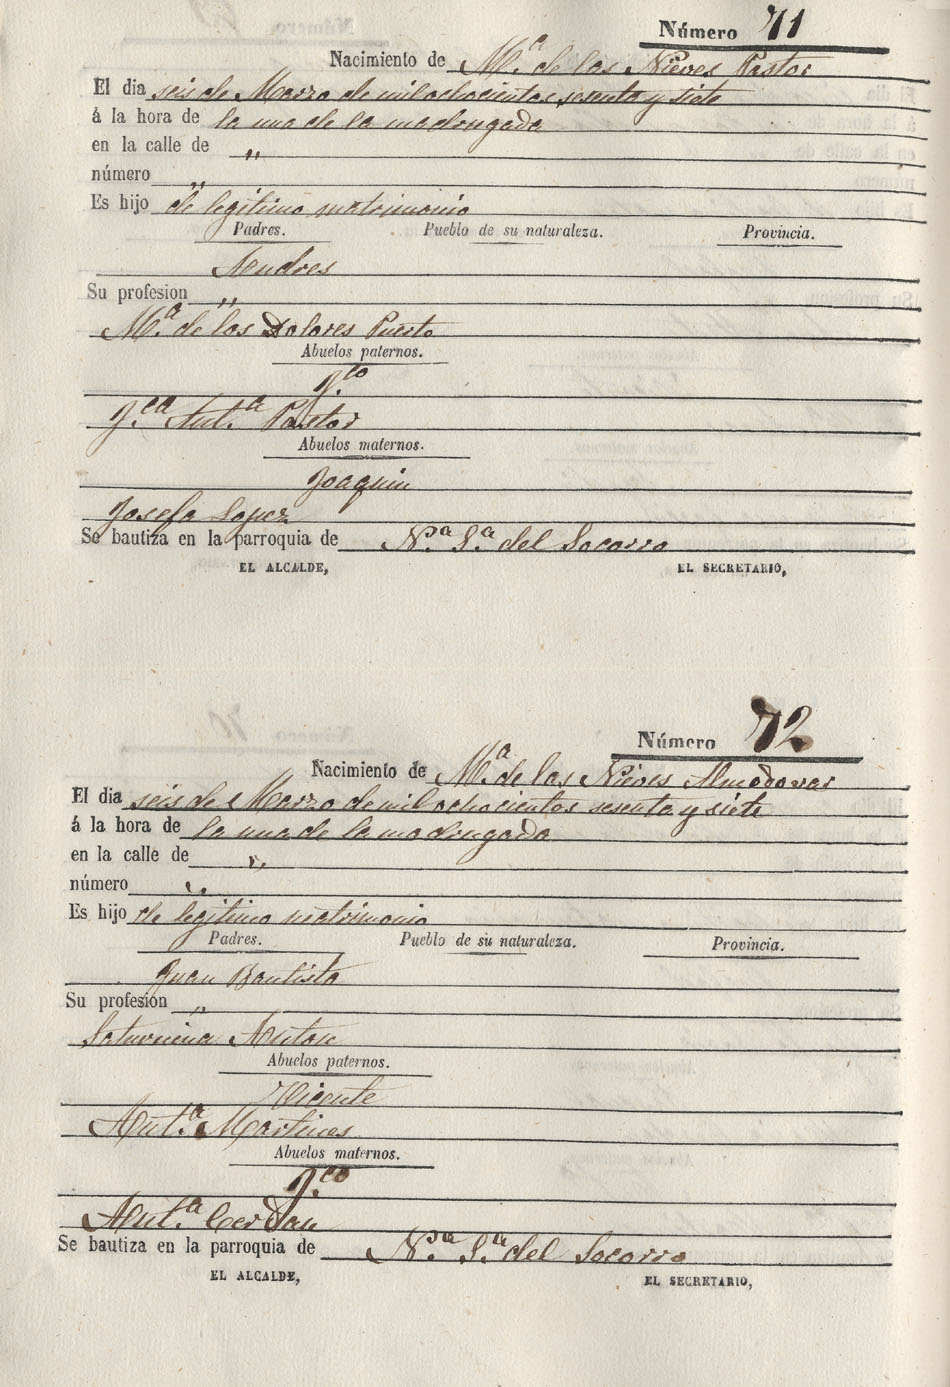 Número 71
Nacimiento de Mª. de las Nieves Pastor
El dia seis de Marzo de mil ochocientos sesenta y siete
á la hora de la una de la madrugada
en la calle de "
número "
Es hijo de legitimo matrimonio
Padres. Pueblo de su naturaleza. Provincia.
Andres
Su profesion "
Mª. de los Dolores Puerto
Abuelos paternos.
Fco
Fca Antª. Pastor
Abuelos maternos.
Joaquin
Josefa Lopez
Se bautiza en la parroquia de Nª. Sª. del Socorro
EL ALCALDE, EL SECRETARIO,
Número 72
Nacimiento de Mª. de las Nieves Almodovar
El dia seis de Marzo de mil ochocientos sesenta y siete
á la hora de la una de la madrugada
en la calle de "
número "
Es hijo de legitimo matrimonio
Padres. Pueblo de su naturaleza. Provincia.
Juan Bautista
Su profesión "
Saturnina Anton
Abuelos paternos.
Vicente
Antª. Martines
Abuelos maternos.
Fco
Antª. Cerdan
Se bautiza en la parroquia de Nª. Sª. del Socorro
EL ALCALDE, EL SECRETARIO,